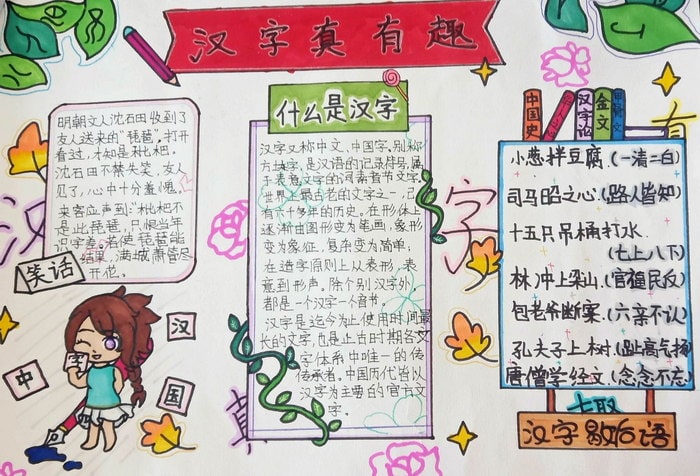 汉字真有趣
明朝文人沈石田收到了
友人送来的"琵琶",打开
看过,才知是枇杷。
沈石田不禁失笑,友人
见了,心中十分羞愧。
来客应声到:"枇杷不
是此琵琶,只恨当年
识字差。若使琵琶能
结果,满城萧管尽
开花。
笑话
汉
中
国
字
什么是汉字
汉字又称中文、中国字,别称
方块字,是汉语的记录符号,属
于表意文字的词素音节文字。
世界上最古老的文字之一,已
有六千多年的历史。在形体上
逐渐由图形变为笔画,象形
变为象征,复杂变为简单;
在造字原则上从表形、表
意到形声。除个别汉字外,
都是一个汉字一个音节。
汉字是迄今为止使用时间最
长的文字,也是上古时期各文
字体系中唯一的传
传承者。中国历代皆以
汉字为主要的官方文
字。
汉
字
真
有
趣
中国史
汉字论
金文
小葱拌豆腐(一清二白)
司马昭之心.(路人皆知)
十五只吊桶打水.
(七上八下)
林冲上梁山.(官福民反)
包老爷断案.(六亲不认)
孔夫子上树.(趾高气扬)
唐僧学经文(念念不忘)
汉字歇后语